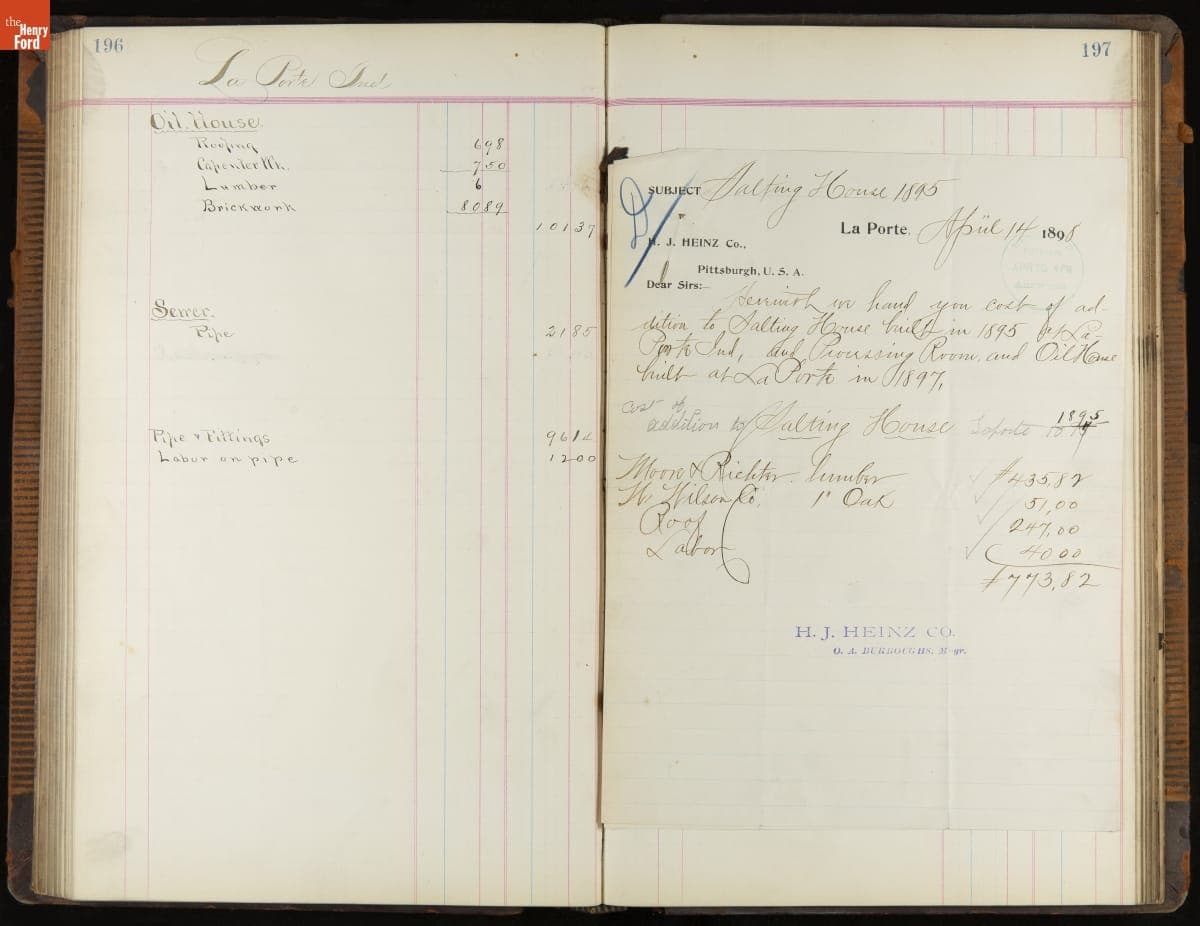 the
Henry
Ford
196
La Porte Ind
Oil House.
Roofing 698
Capenter Wk. 750
Lumber 6
Brickwork 8089
10137
Sewer.
Pipe 2185
Pipe & Fittings 9614
Labor on pipe 1200
197
SUBJECT Salting House 1895
La Porte. April 14 1898
H. J. HEINZ Co.,
Pittsburgh, U. S. A.
Dear Sirs:—
Herewith we hand you cost of ad-
dition to Salting House built in 1895 at La-
Porte Ind, and Processing Room and Oil House
built at La Porte in 1897.
cost of
addition to Salting House Laporte 1895
Moore & Richter lumber $435,82
W. Wilson Co. 1" Oak 51,00
Roof 247,00
Labor 40 00
$773,82
H. J. HEINZ CO.
O. A. BURROUGHS, M'gr.